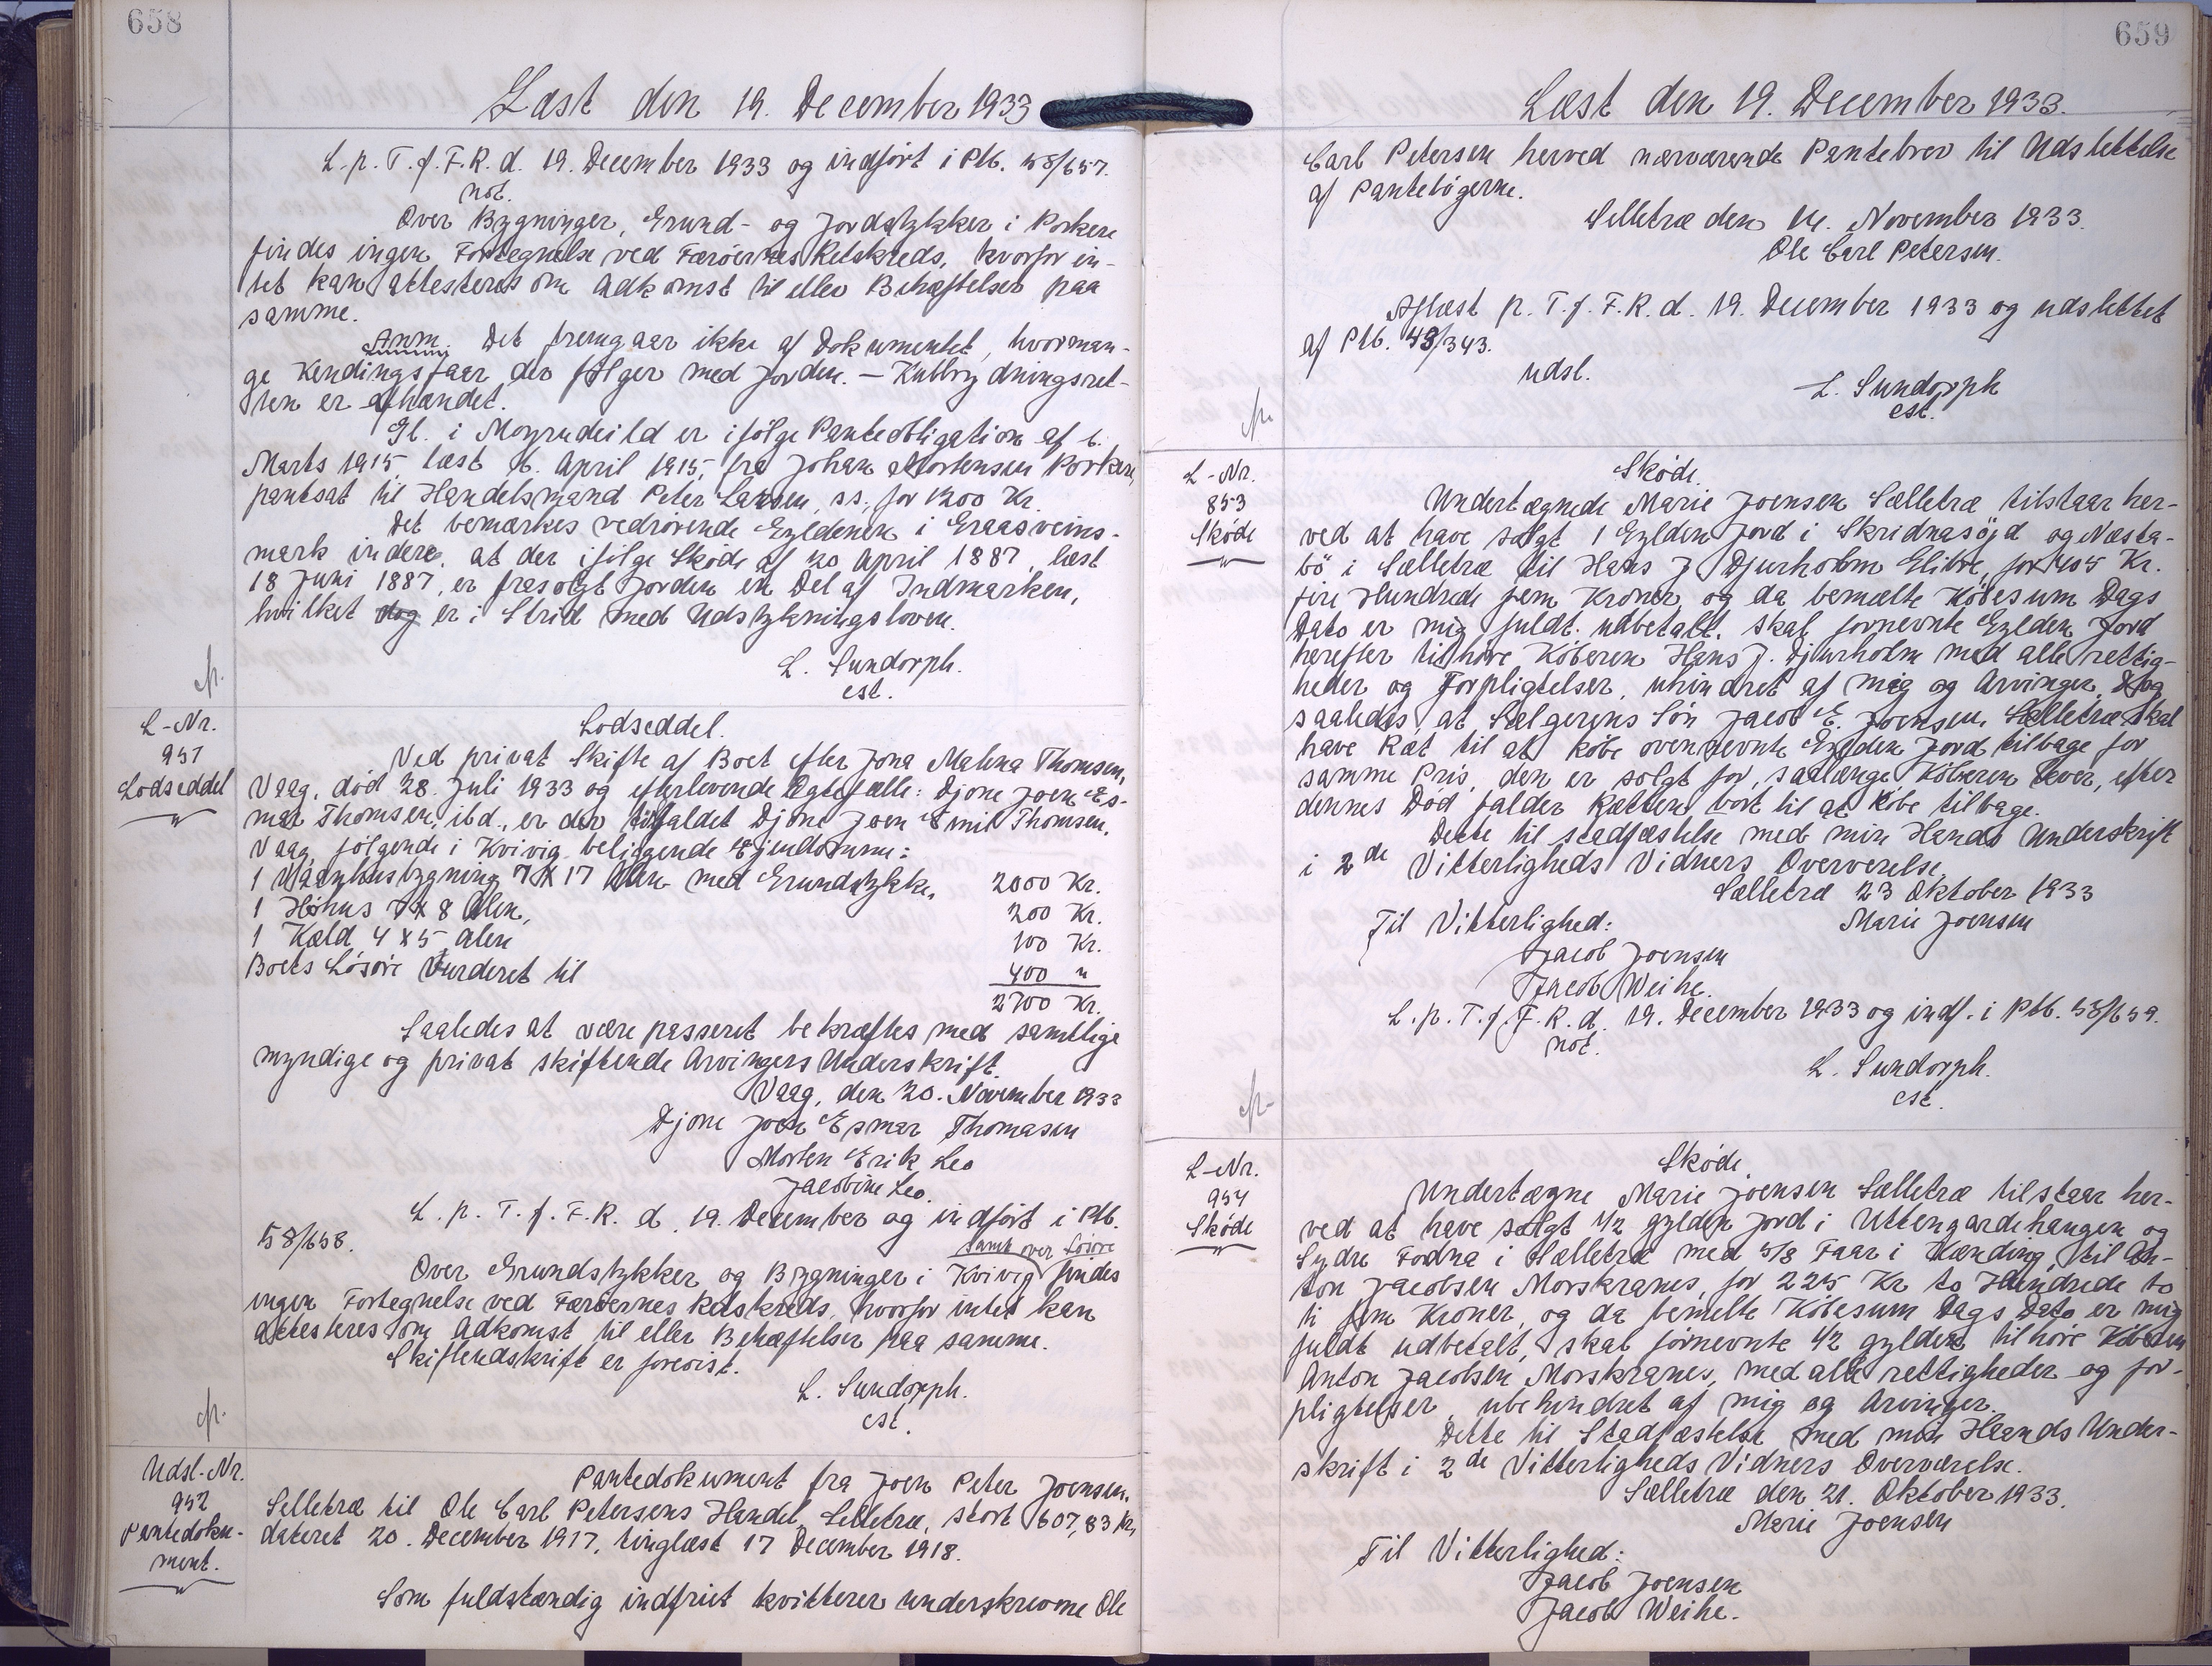 658
Læst den 19. December 1933
L. p. T. f. F. R. d. 19. December 1933 og indført i Ptb. 58/657.
not.
Over Bygninger, Grund- og Jordstykker i Porkere
findes ingen Fortegnelse ved Færøernes Retskreds, hvorfor in-
tet kan attesteres om Adkomst til eller Behæftelser paa
samme.
Anm. Det fremgaar ikke af Dokumentet, hvorman-
ge Kendingsfaar der følger med Jorden. – Kulbrydningsret-
ten er afhændet.
Gl. i Moyrudeild er ifølge Panteobligation af 6.
Marts 1915, læst 16. April 1915, fra Johan Mortensen Porkere,
pantsat til Handelsmand Peter Larsen, ss., for 1200 Kr.
Det bemærkes vedrørende Gyldenen i Graasveins-
mark indere, at der ifølge Skøde af 20 April 1887, læst
18 Juni 1887, er frasolgt Jorden en Del af Indmarken,
hvilket dog er i Strid med Udstykningsloven.
L. Sundorph.
cst.
L-Nr.
951
Lodseddel
Lodseddel.
Ved privat Skifte af Boet efter Jona Malena Thomsen,
Vaag, død 28. Juli 1933 og efterlevende Ægtefælle: Djone Joen Es-
mar Thomsen, ibd., er der tilfaldet Djone Joen Emil Thomsen,
Vaag følgende i Kvivig beliggende Ejendomme:
1 Vaanhusbygning 7 X 17 Alen med Grundstykke, 2000 Kr.
1 Høhus 7 X 8 Alen, 200 Kr.
1 Kæld 4 X 5 Alen 100 Kr.
Boets Løsøre Vurderet til 400 "
2700 Kr.
Saaledes at være passeret bekræftes med samtlige
myndige og privat skiftende Arvingers Underskrift.
Vaag, den 20. November 1933
Djone Joen Esmar Thomasen
Morten Erik Leo
Jacobine Leo.
L. p. T. f. F. R. d. 19. December og indført i Ptb.
58/658.
samt over Løsøre
Over Grundstykker og Bygninger i Kvivig findes
ingen Fortegnelse ved Færøernes Retskreds, hvorfor intet kan
attesteres om Adkomst til eller Behæftelser paa samme.
Skifteudskrift er forevist.
L. Sundorph.
cst.
Udsl.-Nr.
952
Pantedoku-
ment.
Pantedokument fra Joen Peter Joensen,
Selletræ til Ole Carl Petersens Handel, Selletræ, stort 607,83 Kr,
dateret 20. December 1917, tinglæst 17 December 1918.
Som fuldstændig indfriet kvitterer underskrevne Ole
659
Læst den 19. December 1933.
Carl Petersen herved nærværende Pantebrev til Udslettelse
af Pantebøgerne.
Selletræ den 14. November 1933.
Ole Carl Petersen.
Aflæst p. T. f. F. R. d. 19. December 1933 og udslettet
af Ptb. 43/343.
udsl.
L. Sundorph
cst.
L-Nr.
853
Skøde
Skøde.
Undertægnede Marie Joensen Sælletræ tilstaar her-
ved at have solgt 1 Gylden Jord i Skridnasøjd og Næsta-
bø i Sælletræ til Hans J Djurholm Glibre, for 405 Kr.
fire Hundrede fem Kroner, og da bemælte Købesum Dags
Dato er mig fuldt udbetalt. skal fornevnte Gylden Jord
herefter tilhøre Køberen Hans J. Djurholm med alle rettig-
heder og Forpligtelser, uhindret af mig og Arvinger, dog
saaledes, at Sælgerens Søn Jacob E. Joensen, Sælletræ skal
have Ræt til at købe ovennevnte Gylden Jord tilbage for
samme Pris, den er solgt for, saalænge Køberen lever, efter
dennes Død falder Rætten bort til at købe tilbage.
Dette til stadfæstelse med min Hands Underskrift
i 2de Vitterligheds Vidners Oververelse.
Sælletræ 23 Oktober 1933
Marie Joensen
Til Vitterlighed:
Jacob Joensen
Jacob Weihe.
L. p. T. f. F. R. d. 19. December 1933 og indf. i Ptb. 58/659.
not.
L. Sundorph.
cst.
L-Nr.
954
Skøde
Skøde.
Undertægne Marie Joensen Sælletræ tilstaar her-
ved at have solgt 1/2 gylden Jord i Uttengardehangen og
Sydre Fodna i Sælletræ med 5/8 Faar i Hænding, til An-
ton Jacobsen Morskranes, for 225 Kr to Hundrede to
ti fem Kroner, og da bemelte Købesum Dags Dato er mig
fuldt udbetalt, skal førnevnte 1/2 gylden tilhøre Køberen
Anton Jacobsen Morskranes, med alle rettigheder og for-
pligtelser, ubehindret af mig og Arvinger.
Dette til Stadfæstelse med min Haands Under-
skrift i 2de Vitterligheds Vidners Overværelse.
Sælletræ den 21. Oktober 1933.
Marie Joensen
Til Vitterlighed:
Jacob Joensen
Jacob Weihe.